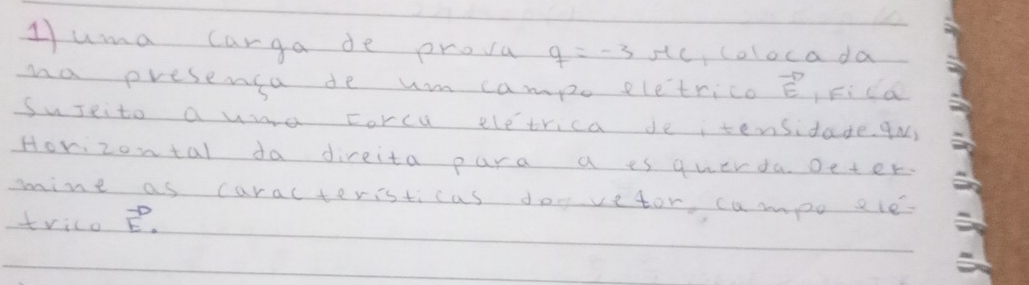 1) uma carga de prova q = -3 μc, colocada
na presença de um campo elétrico E⃗, Fica
Sujeito a uma Força elétrica de itensidade 9N,
Horizontal da direita para a esquerda. Deter-
mine as características do vetor campo elé-
trico E⃗.